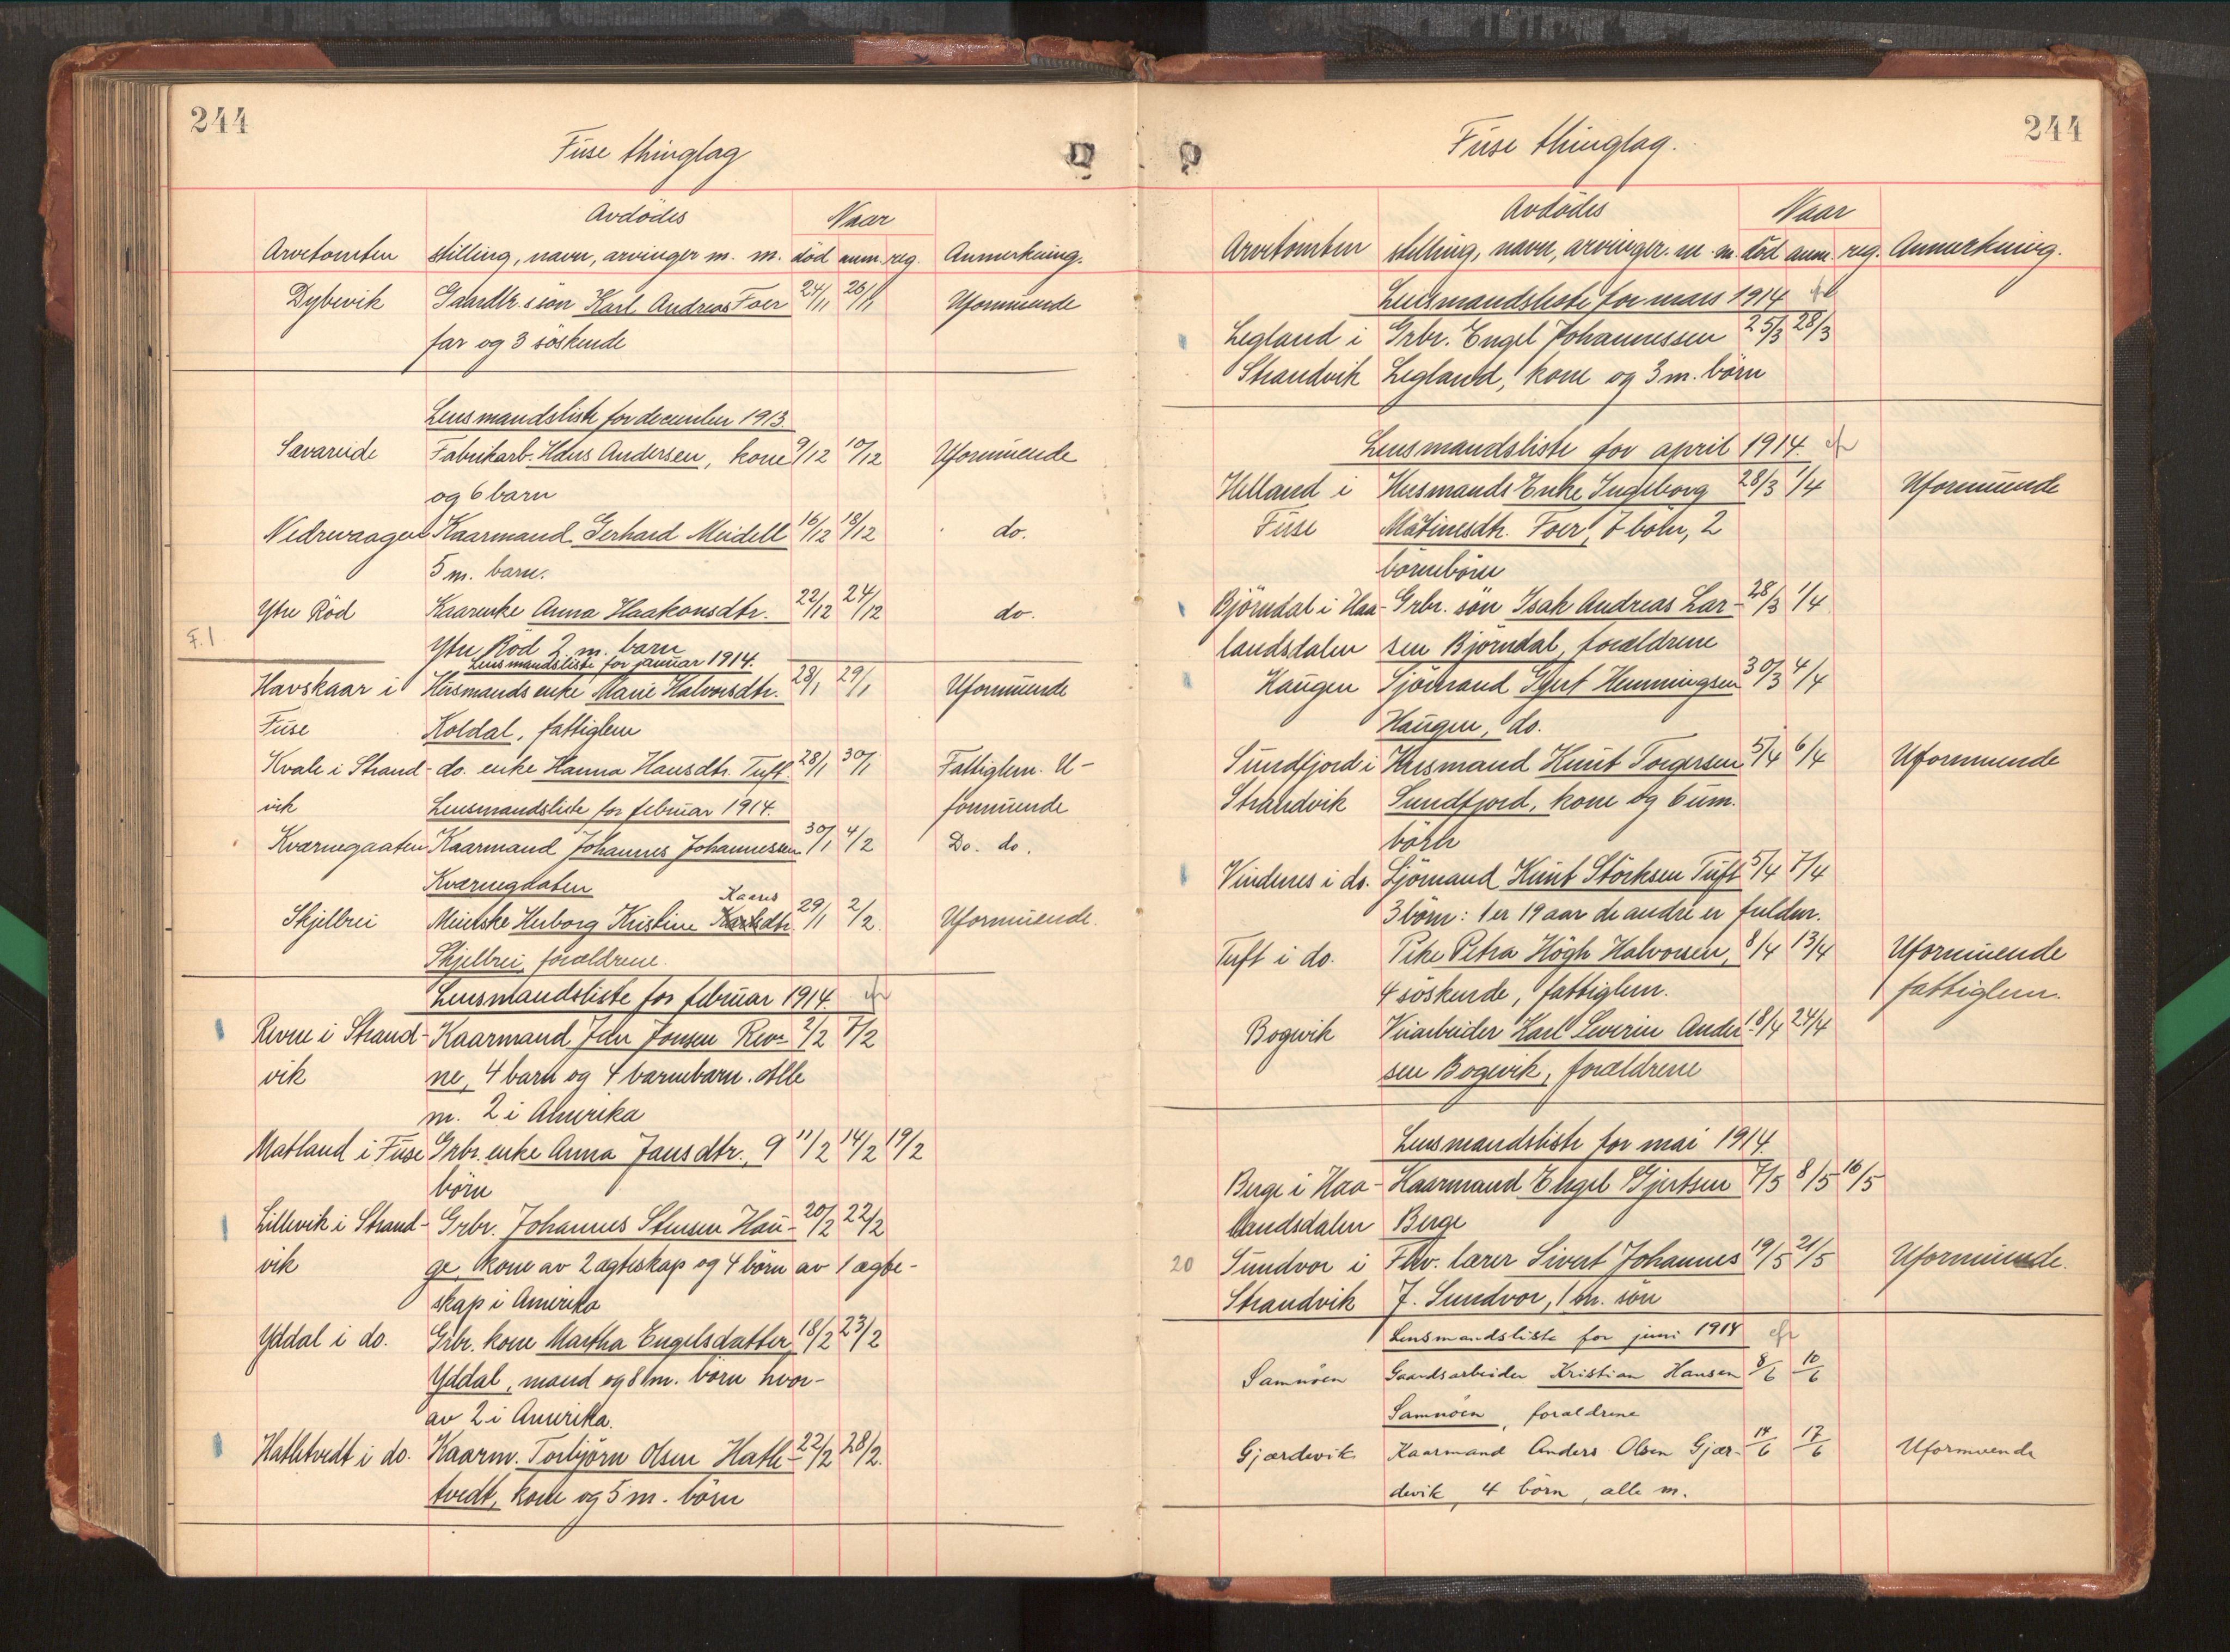 244
Fuse thinglag
Avdödes Naar
Arvetomten stilling, navn, arvinger m. m. död anm. reg. Anmerkning.
Dybevik Gaardbr. sön Karl Andreas Foer 24/11 26/11 Uformuende
far og 3 söskende
Lensmandsliste for december 1913.
Sævareide Fabrikarb. Hans Andersen, kone 9/12 10/12 Uformuende
og 6 barn
Nedrevaagen Kaarmand Gerhard Meidell 16/12 18/12 do.
5 m. barn.
Ytre Röd Kaarenke Anna Haakonsdtr. 22/12 24/12 do.
F. 1.
Ytre Röd 2 m. barn
Lensmandsliste for januar 1914.
Havskaar i Husmands enke Marie Halvorsdtr. 28/1 29/1 Uformuende
Fuse Koldal, fattiglem
Kvale i Strand- do. enke Hanna Hansdtr. Tuft 28/1 30/1 Fattiglem. U-
vik Lensmandsliste for februar 1914. formuende
Kværnegaaten Kaarmand Johannes Johannessen 30/1 4/2 Do. do.
Kværnegaaten
Kaares
Skjelbrei Meierske Herborg Kristine Karlsdtr. 29/1 2/2. Uformuende.
Skjelbrei, forældrene.
Lensmandsliste for februar 1914. efr
Revne i Strand- Kaarmand Jan Jonsen Rev- 2/2 7/2
vik ne, 4 barn og 4 barnebarn. Alle
m. 2 i Amerika
Matland i Fuse Grbr. enke Anna Jansdtr., 9 11/2 14/2 19/2
börn
Lillevik i Strand- Grbr. Johannes Stensen Hau- 20/2 22/2
vik ge, kone av 2 ægteskap og 4 börn av 1 ægte-
skap i Amerika
Yddal i do. Grbr. kone Martha Engelsdatter 18/2 23/2
Yddal, mand og 8 m. börn hvor-
av 2 i Amerika.
Hatletvedt i do. Kaarm. Torbjörn Olsen Hatle- 22/2 28/2.
tvedt, kone og 5 m. börn
244
Fuse thinglag.
Avdödes Naar
Arvetomten stilling, navn, arvinger. m. m. död anm. reg. Anmerkning.
Lensmandsliste for mars 1914
Legland i Grbr. Engel Johannessen 25/3 28/3
Strandvik Legland, kone og 3 m. börn
Lensmandsliste for april 1914. efr
Helland i Husmands Enke Ingeborg 28/3 1/4 Uformuende
Fuse Matinesdtr. Foer, 7 börn, 2
börnebörn
Björndal i Haa- Grbr. sön Isak Andreas Lar- 28/3 1/4
landsdalen sen Björndal, forældrene
Haugen Sjömand Gjert Henningsen 30/3 4/4
Haugen, do.
Sundfjord i Husmand Knut Torgersen 5/4 6/4 Uformuende
Strandvik Sundfjord, kone og 6 um.
börn
Vindenes i do. Sjömand Knut Störksen Tuft 5/4 7/4
3 börn: 1 er 19 aar de andre er fuldm.
Tuft i do. Pike Petra Högh Halvorsen, 8/4 13/4 Uformuende
4 söskende, fattiglem. fattiglem.
Bogevik Veiarbeider Karl Severin Ander 18/4 24/4
sen Bogevik, forældrene
Lensmandsliste for mai 1914.
Berge i Haa- Kaarmand Engel Gjertsen 7/5 8/5 16/5
landsdalen Berge
20 Sundvor i Fhv. lærer Sivert Johannes 19/5 21/5 Uformuende.
Strandvik J. Sundvor, 1 m. sön
Lensmandsliste for juni 1914 efr
Samnöen Gaardsarbeider Kristian Hansen 8/6 10/6
Samnöen, forældrene
Gjærdevik Kaarmand Anders Olsen Gjær- 14/6 17/6 Uformuende
devik, 4 börn, alle m.